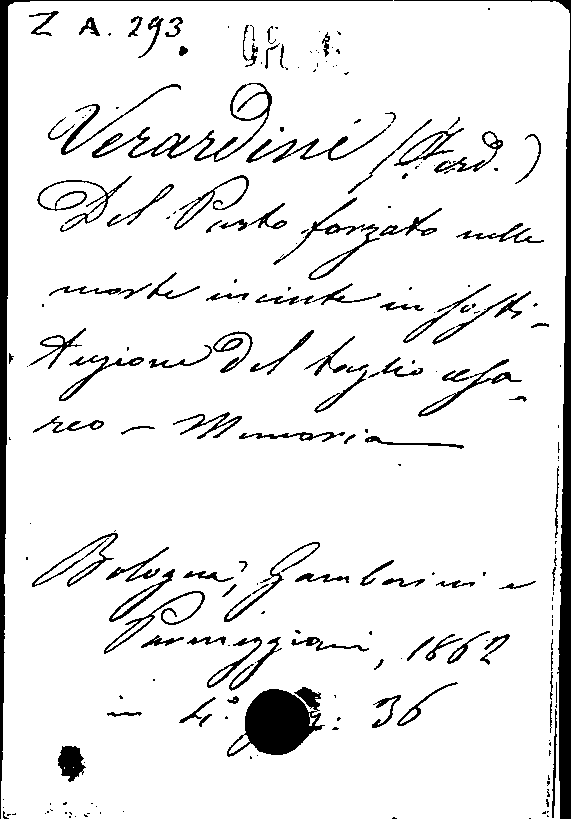 Z A. 293.
Verardini (Ferd.)
Del Parto forzato nelle
morte incinte in sosti-
tuzione del taglio cesa-
reo - Memoria
Bologna, Gamberini e
Parmeggiani, 1862
in 4.° 36